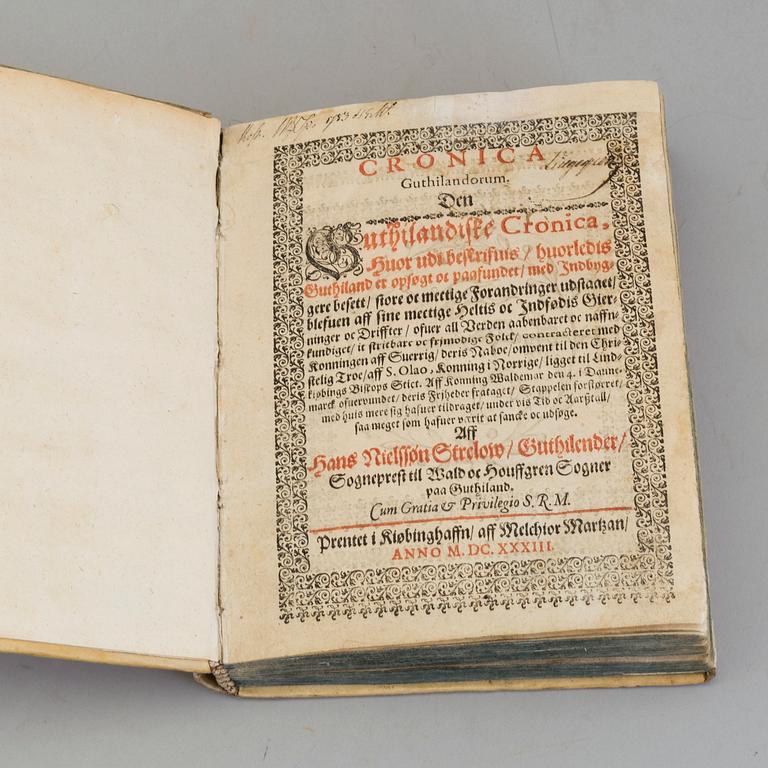 CRONICA
Guthilandorum.
Den
Guthilandiske Cronica,
Huor udi beskrifuis / huorledis
Guthiland er opsøgt oc paafundet / med Indbyg-
gere besett / store oc mectige Forandringer udstaaet /
blefuen aff sine mectige Heltis oc Indfødis Gier-
ninger oc Driffter / ofuer all Verden aabenbaret oc naffn-
kundiget / it striebart oc frimodige Folck / contracteret med
Konningen aff Suerrig / deris Naboe / omvent til den Chri-
stelig Troe / aff S. Olao, Konning i Norrige / ligget til Lind-
kiøbings Biskops Stict. Aff Konning Waldemar den 4. i Danne-
marck ofuervundet / deris Frjheder frataget / Stappelen forstørret /
med huis mere sig hafuer tildraget / under vis Tid oc Aarßtall /
saa meget som hafuer værit at sancke oc udsøge.
Aff
Hans Nielssøn Strelow / Guthilender /
Sogneprest til Wald oc Houffgren Sogner
paa Guthiland.
Cum Gratia & Privilegio S. R. M.
Prentet i Kiøbinghaffn / aff Melchior Martzan /
ANNO M. DC. XXXIII.